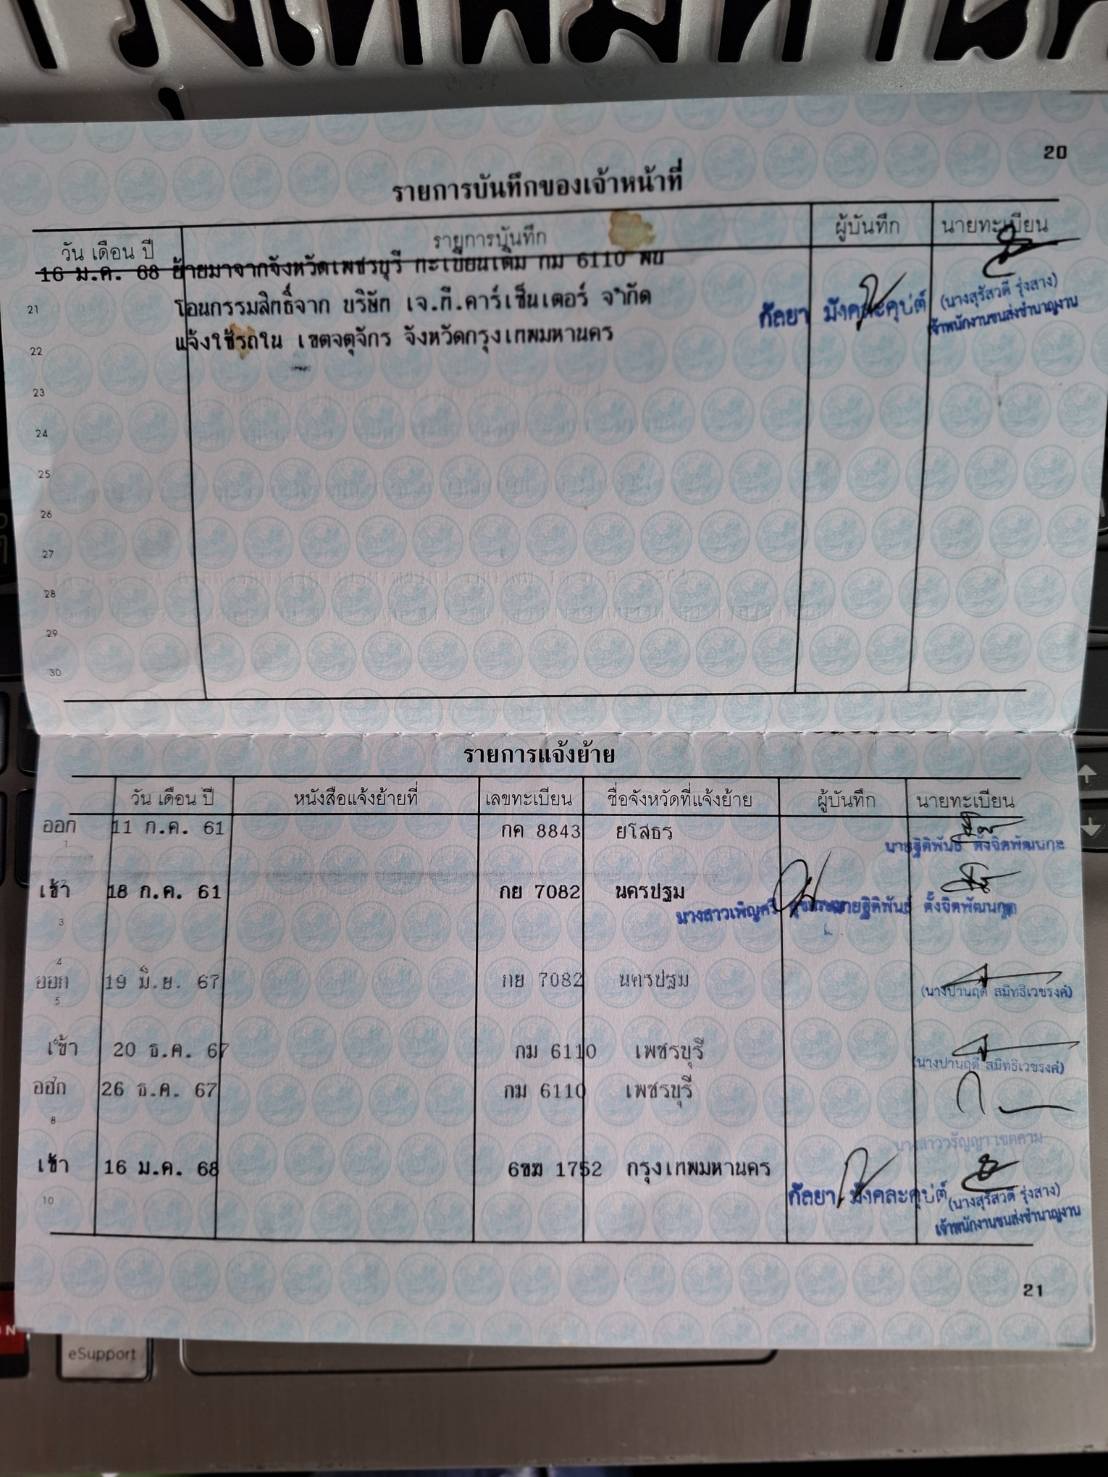 กรุงเทพมหานคร
20
รายการบันทึกของเจ้าหน้าที่
วัน เดือน ปี รายการบันทึก ผู้บันทึก นายทะเบียน
16 ม.ค. 68 ย้ายมาจากจังหวัดเพชรบุรี ทะเบียนเดิม กม 6110 พบ
21 โอนกรรมสิทธิ์จาก บริษัท เจ.ที.คาร์เซ็นเตอร์ จำกัด กัลยา มังคละคุปต์ (นางสุรัสวดี รุ่งสาง)
เจ้าพนักงานขนส่งชำนาญงาน
22 แจ้งใช้รถใน เขตจตุจักร จังหวัดกรุงเทพมหานคร
23
24
25
26
27
28
29
30
รายการแจ้งย้าย
วัน เดือน ปี หนังสือแจ้งย้ายที่ เลขทะเบียน ชื่อจังหวัดที่แจ้งย้าย ผู้บันทึก นายทะเบียน
ออก 11 ก.ค. 61 กค 8843 ยโสธร
1 นายฐิติพันธ์ ตั้งจิตพัฒนกุล
เข้า 18 ก.ค. 61 กย 7082 นครปฐม
3 นางสาวเพ็ญศรี นายฐิติพันธ์ ตั้งจิตพัฒนกุล
4
ออก 19 มิ.ย. 67 กย 7082 นครปฐม
5 (นางปานฤดี สมิทธิเวชรงค์)
เข้า 20 ธ.ค. 67 กม 6110 เพชรบุรี
(นางปานฤดี สมิทธิเวชรงค์)
ออก 26 ธ.ค. 67 กม 6110 เพชรบุรี
8
นางสาววรัญญา เขตคาม
เข้า 16 ม.ค. 68 6ขฆ 1752 กรุงเทพมหานคร
10 กัลยา มังคละคุปต์ (นางสุรัสวดี รุ่งสาง)
เจ้าพนักงานขนส่งชำนาญงาน
21
eSupport